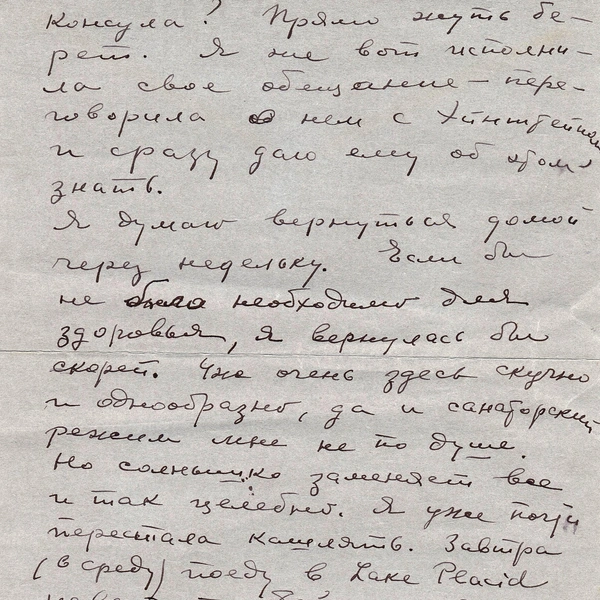 Консула? Прямо жуть бе-
рет. Я же вот исполни-
ла свое обещание – пере-
говорила о нем с Эйнштейном
и сразу даю ему об этом
знать.
Я думаю вернуться домой
через недельку. Если бы
не было необходимо для
здоровья, я вернулась бы
скорей. Уж очень здесь скучно
и однообразно, да и санаторский
режим мне не по душе.
Но солнышко заменяет все
и так целебно. Я уже почти
перестала кашлять. Завтра
(в среду) поеду в Lake Placid